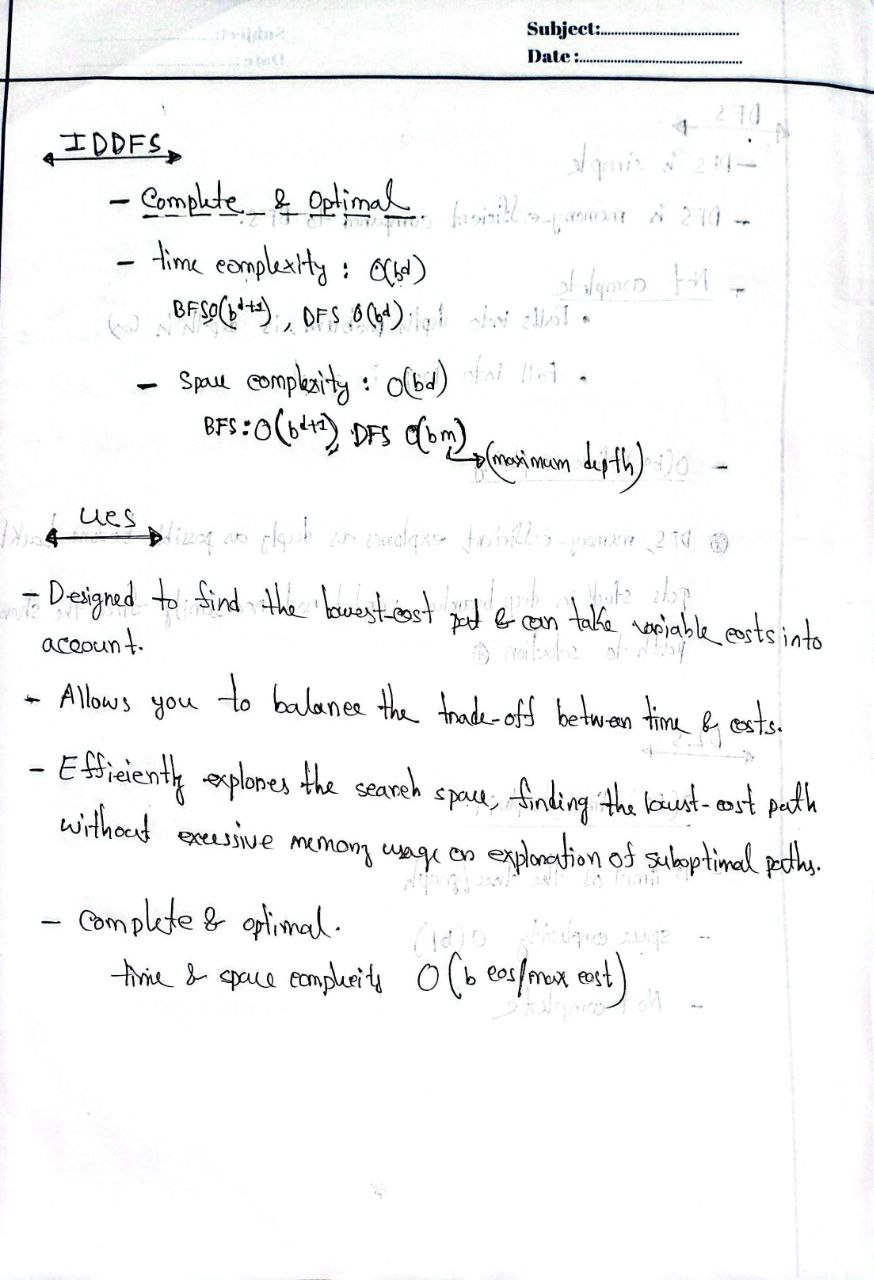 Subject:
Date:
IDDFS
- Complete & Optimal
- time complexity : O(b^d)
BFS O(b^d+1), DFS O(b^d)
- Space complexity : O(bd)
BFS : O(b^d+1), DFS O(bm)
(maximum depth)
UCS
- Designed to find the lowest-cost pat & can take variable costs into
account.
- Allows you to balance the trade-off between time & costs.
- Efficiently explores the search space, finding the lowest-cost path
without excessive memory usage or exploration of suboptimal paths.
- Complete & optimal.
time & space complexity O(b cos/max cost)